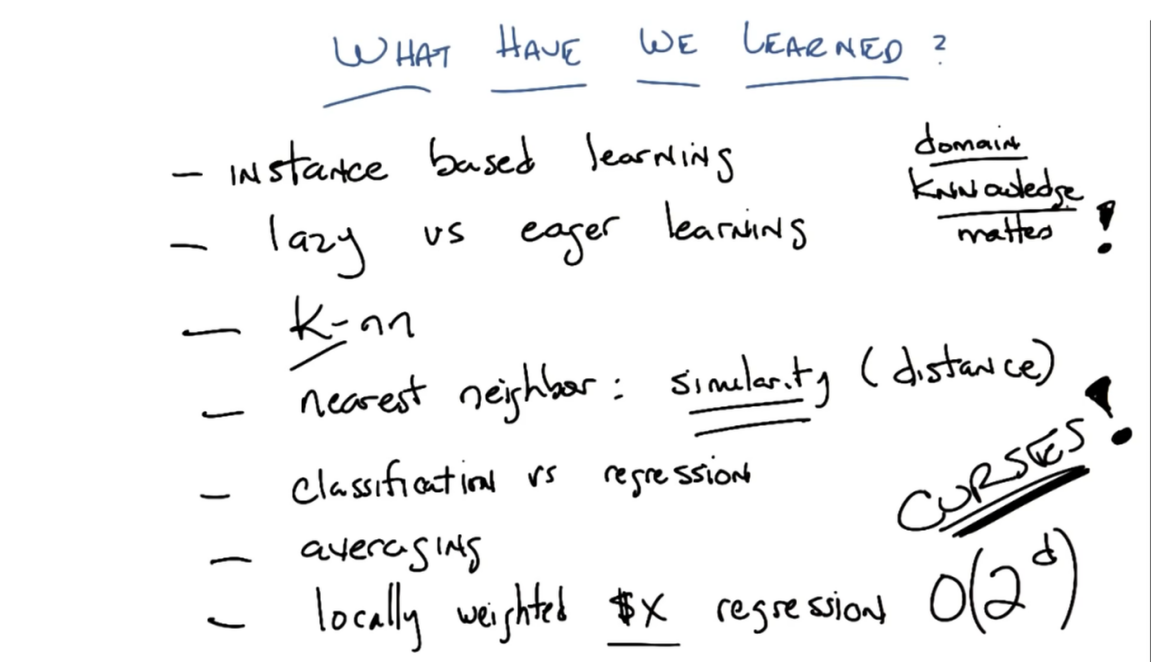 WHAT HAVE WE LEARNED?
- instance based learning
- lazy vs eager learning
- k-nn
- nearest neighbor: similarity (distance)
- classification vs regression
- averaging
- locally weighted $x regression
domain
knnowledge
matters
!
CURSES!
O(2^d)